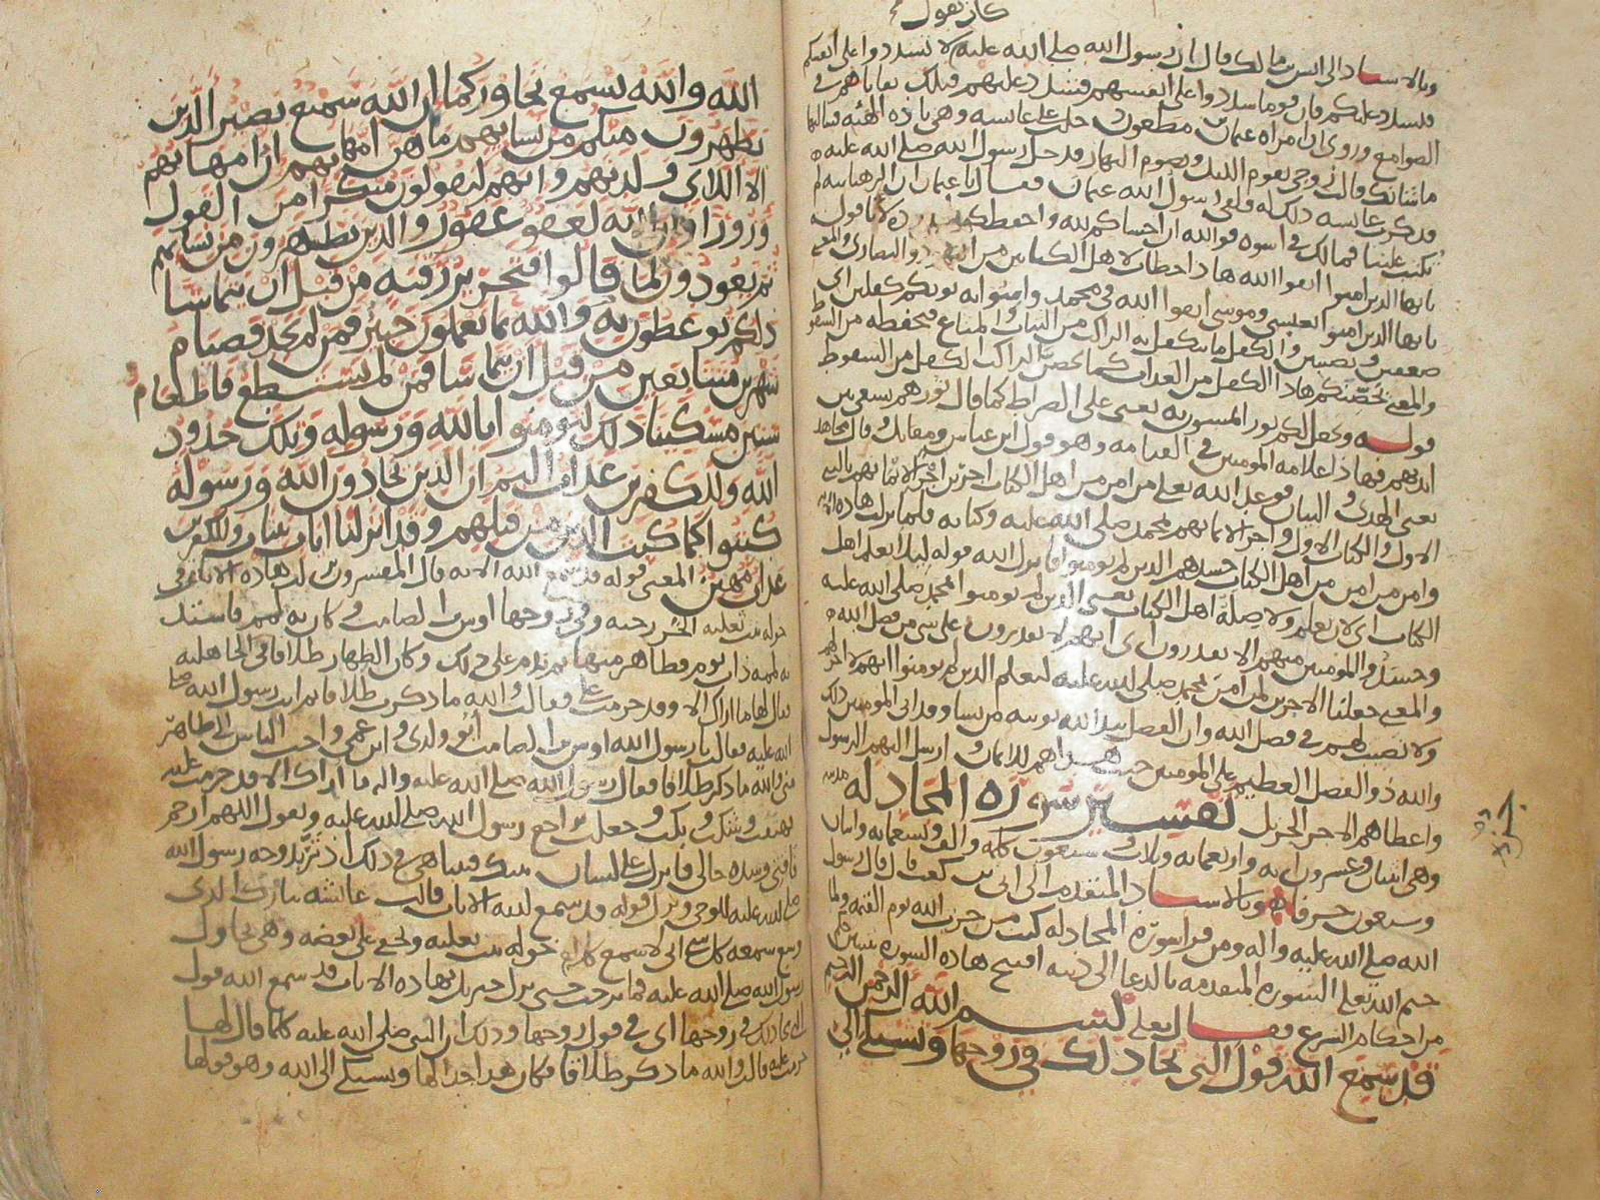 كان يقول
وبالاسناد الى انس بن مالك قال ان رسول الله صلى الله عليه لا تشددوا على انفسكم
فيشدد عليكم فان قوما شددوا على انفسهم فشدد عليهم فتلك بقاياهم في
الصوامع وروى ان امراه عثمان بن مظعون دخلت على عايشه وهي باذه الهيئه فسالتها
ما شانك قالت زوجي يقوم الليل ويصوم النهار فدخل رسول الله صلى الله عليه
فذكرت عايشه ذلك له فلقي رسول الله عثمان فقال يا عثمان ان الرهبانيه لم
تكتب علينا فمالك في اسوه فوالله ان اخشاكم لله واحفظكم
يايها الذين امنوا اتقوا الله هاذا خطاب لاهل الكتابين من اليهود والنصارى والمعنى
يايها الذين امنوا بعيسى وموسى اتقوا الله في محمد وامنوا به يوتكم كفلين اي
ضعفين ونصيبين والكفل ما يتكفل به الراكب من الثياب والمتاع فيحفظه من السقوط
والمعنى يحصنكم هاذا الكفل من العذاب كما يحصن الراكب الكفل من السقوط
قوله ويجعل لكم نورا تمشون به يعني على الصراط كما قال نورهم يسعى بين
ايديهم فهاذا علامه المومنين في القيامه وهو قول ابن عباس ومقاتل وقال مجاهد
يعني الهدى والبيان فوعد الله تعلى من امن من اهل الكتاب اجرين اجرا لايمانهم بالنبي
الاول والكتاب الاول واجرا لايمانهم بمحمد صلى الله عليه وكتابه فلما نزلت هاذه الايه
وامن من امن من اهل الكتاب حسدهم الذين لم يومنوا فانزل الله قوله ليلا يعلم اهل
الكتاب اي لان يعلم ولا صلة اهل الكتاب يعني الذين لم يومنوا بمحمد صلى الله عليه
وحسدوا المومنين منهم الا يقدرون اي انهم لا يقدرون على شي من فضل الله
والمعنى جعلنا الاجرين لمن امن بمحمد صلى الله عليه ليعلم الذين لم يومنوا انهم لا اجر لهم
ولا نصيب لهم في فضل الله وان الفضل بيد الله يوتيه من يشا وقد اتى المومنين ذلك
والله ذو الفضل العظيم على المومنين حيث هداهم للايمان وارسل اليهم الرسول
واعطاهم الاجر الجزيل تفسير سورة المجادله مدنيه
وهي اثنتان وعشرون ايه واربعمايه وثلاث وسبعون كلمه والف وتسعمايه واثنان
وسبعون حرفا وبالاسناد المتقدم الى ابي بن كعب قال قال رسول
الله صلى الله عليه واله ومن قرا سورة المجادله كتب من حزب الله يوم القيمه ولما
ختم الله تعلى السوره المتقدمه بالدعا الى دينه افتتح هاذه السوره
من احكام الشرع فقال تعلى بسم الله الرحمن الرحيم
قد سمع الله قول التي تجادلك في زوجها وتشتكي الى
الله والله يسمع تحاوركما ان الله سميع بصير الذين
يظهرون منكم من نسايهم ما هن امهاتهم ان امهاتهم
الا اللاي ولدنهم وانهم ليقولون منكرا من القول
وزورا وان الله لعفو غفور والذين يظهرون من نسايهم
ثم يعودون لما قالوا فتحرير رقبه من قبل ان يتماسا
ذلكم توعظون به والله بما تعملون خبير فمن لم يجد فصيام
شهرين متتابعين من قبل ان يتماسا فمن لم يستطع فاطعام
ستين مسكينا ذلك لتومنوا بالله ورسوله وتلك حدود
الله وللكفرين عذاب اليم ان الذين يحادون الله ورسوله
كبتوا كما كبت الذين من قبلهم وقد انزلنا ايات بينات وللكفرين
عذاب مهين المعنى قوله قد سمع الله الايه قال المفسرون نزلت هاذه الايات في
خوله بنت ثعلبه الخزرجيه وفي زوجها اوس بن الصامت وكان به لمم فاشتد
به لممه ذات يوم فظاهر منها ثم ندم على ذلك وكان الظهار طلاقا في الجاهليه
فقال لها ما اراك الا وقد حرمت علي فقالت والله ما ذكرت طلاقا ثم اتت رسول الله صلى
الله عليه فقالت يا رسول الله اوس بن الصامت ابو ولدي وابن عمي واحب الناس الي ظاهر
مني والله ما ذكر طلاقا فقال رسول الله صلى الله عليه واله ما اراك الا قد حرمت عليه
فهتفت وشكت وبكت وجعلت تراجع رسول الله صلى الله عليه وتقول اللهم ارحم
فاقتي وشده حالي فانزل على لسان نبيك فبينا هي في ذلك اذ تربد وجه رسول الله
صلى الله عليه للوحي ونزل قوله قد سمع الله الايات قالت عائشه تبارك الذي
وسع سمعه كل شي اني لاسمع كلام خوله بنت ثعلبه ويخفى علي بعضه وهي تحاول
رسول الله صلى الله عليه فما برحت حتى نزل جبريل بهاذه الايات قد سمع الله قول
التي تجادلك في زوجها اي في قول زوجها وذلك ان النبي صلى الله عليه كلما قال لها
حرمت عليه قالت والله ما ذكر طلاقا فكان هذا جدالها وتشتكي الى الله وهو قولها